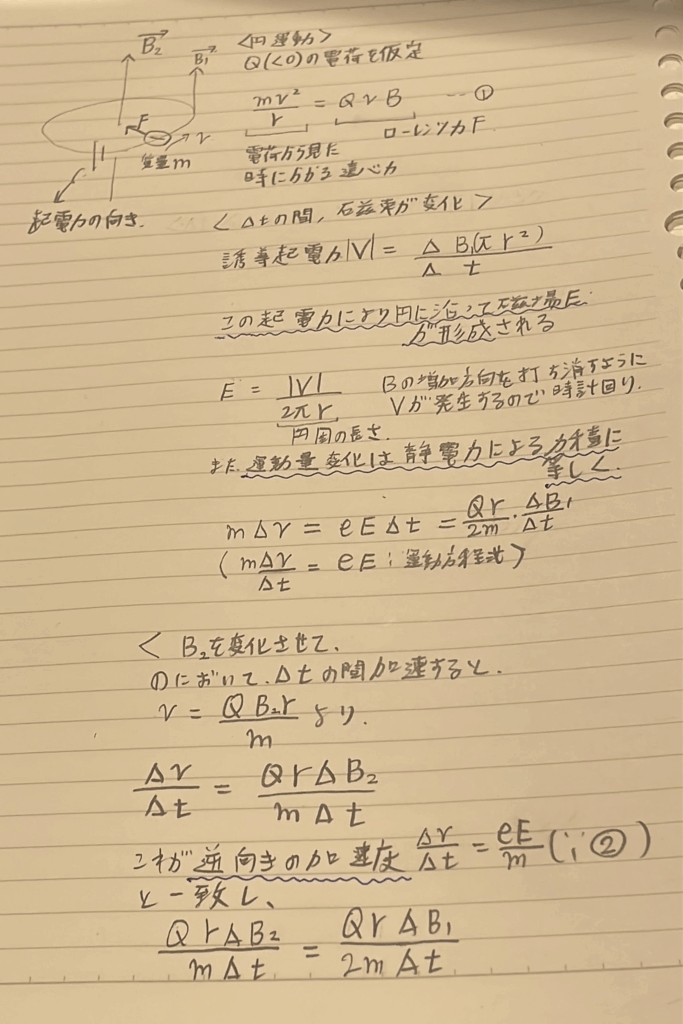 B₂
B₁
<円運動>
Q(<0)の電荷を仮定
mv²/r = QvB ---①
ローレンツ力F
F
v
質量m
電荷から見た
時にかかる遠心力
起電力の向き.
<Δtの間, 磁束が変化>
誘導起電力|V| = Δ B₁(π r²)/Δ t
この起電力により円に沿って磁場E
が形成される
E = |V|/2πr
Bの増加方向を打ち消すように
Vが発生するので時計回り.
円周の長さ.
また 運動量変化は静電力による力積に
等しく.
mΔv = eEΔt = Qr/2m・ΔB₁/Δt
(mΔv/Δt = eE ; 運動方程式>
< B₂を変化させて、
のにおいて、Δtの間加速すると.
v = Q B₂r/m より.
Δv/Δt = QrΔB₂/mΔt
これが逆向きの加速度 Δv/Δt = eE/m (∵②)
と一致し、
QrΔB₂/mΔt = QrΔB₁/2mΔt